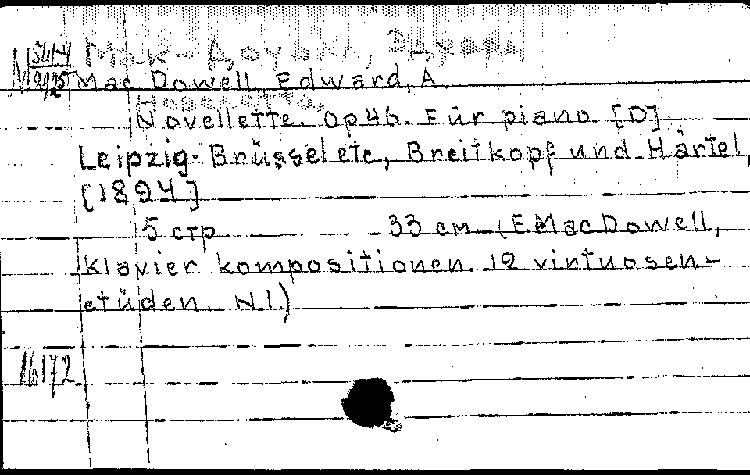 Мак-Доуэлл, Эдуард
M 3414
2925
Mac Dowell, Edward, A.
Новеллетта.
Novellette. Op 46. Für piano [D]
Leipzig-Brüssel etc, Breitkopf und Härtel,
[1894]
5 стр 33 см (E. MacDowell,
Klavier kompositionen. 12 vintuosen-
etüden N1.)
16172